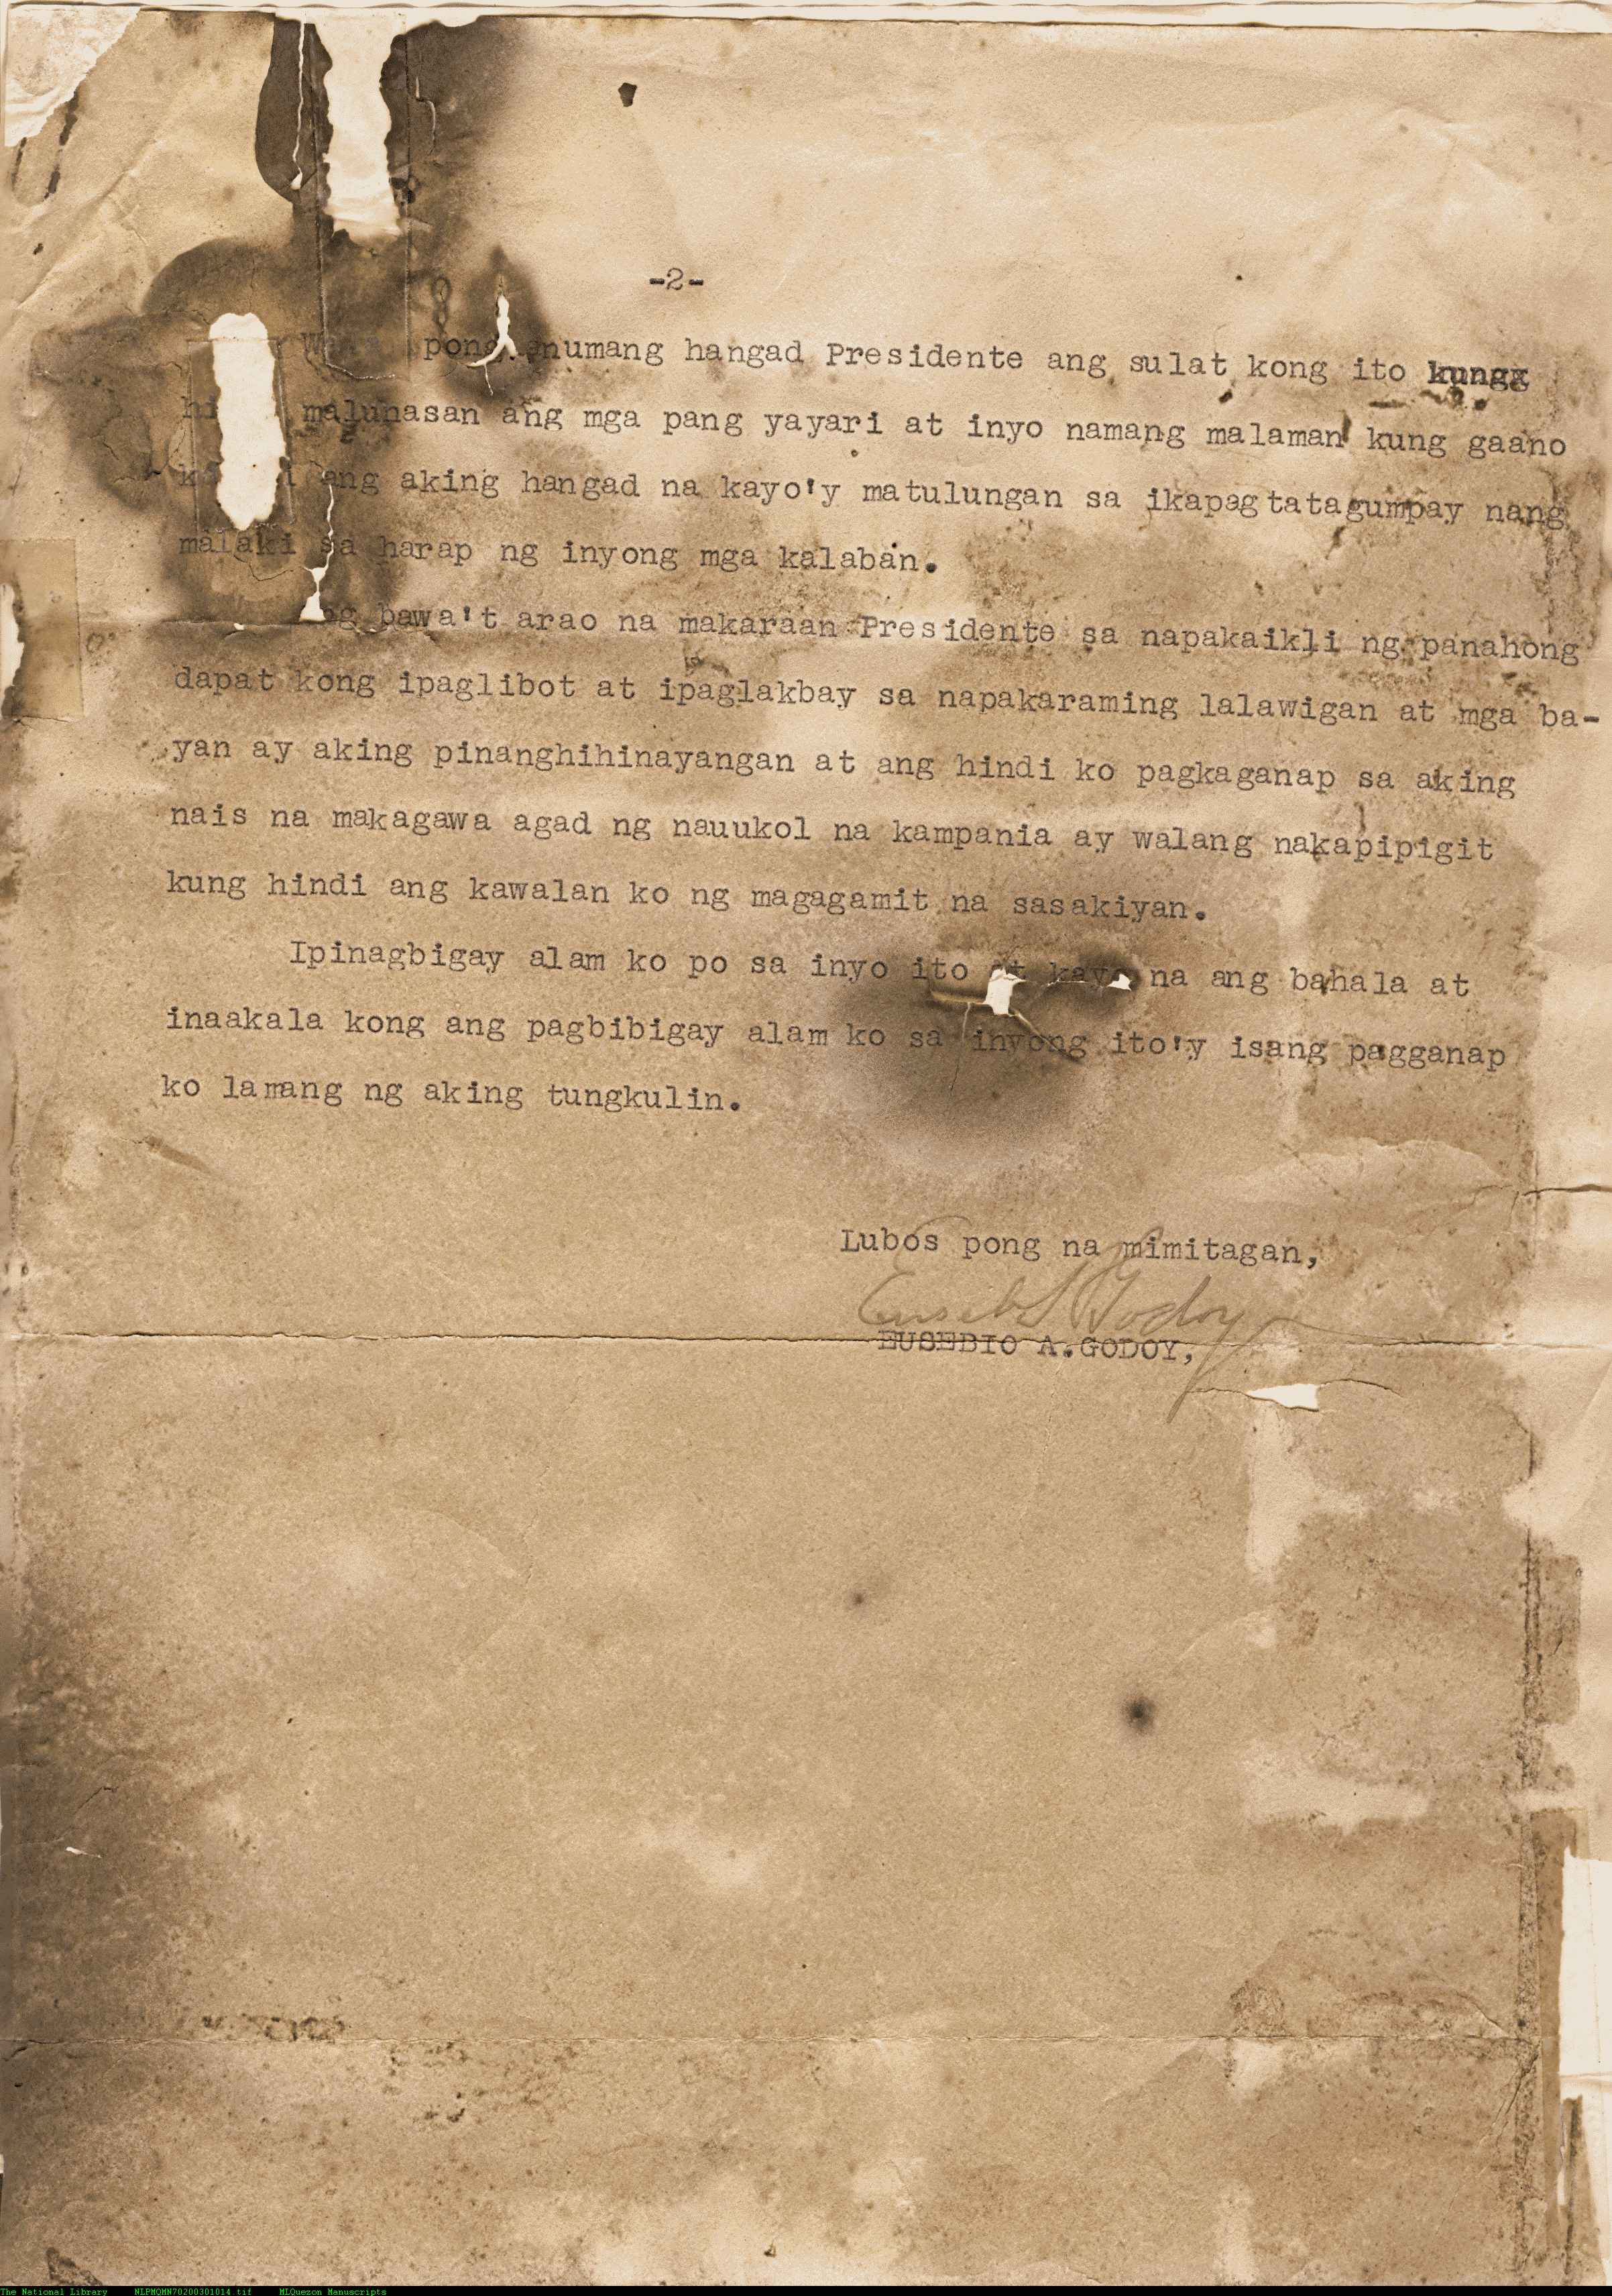 -2-
pong anumang hangad Presidente ang sulat kong ito kungg
malunasan ang mga pang yayari at inyo namang malaman kung gaano
ang aking hangad na kayo'y matulungan sa ikapagtatagumpay nang
malaki sa harap ng inyong mga kalaban.
bawa't arao na makaraan Presidente sa napakaikli ng panahong
dapat kong ipaglibot at ipaglakbay sa napakaraming lalawigan at mga ba-
yan ay aking pinanghihinayangan at ang hindi ko pagkaganap sa aking
nais na makagawa agad ng nauukol na kampania ay walang nakapipigit
kung hindi ang kawalan ko ng magagamit na sasakiyan.
Ipinagbigay alam ko po sa inyo ito at kayo na ang bahala at
inaakala kong ang pagbibigay alam ko sa inyong ito'y isang pagganap
ko lamang ng aking tungkulin.
Lubos pong na mimitagan,
EUSEBIO A.GODOY,
The National Library NLPMQMN70200301014.tif MLQuezon Manuscripts